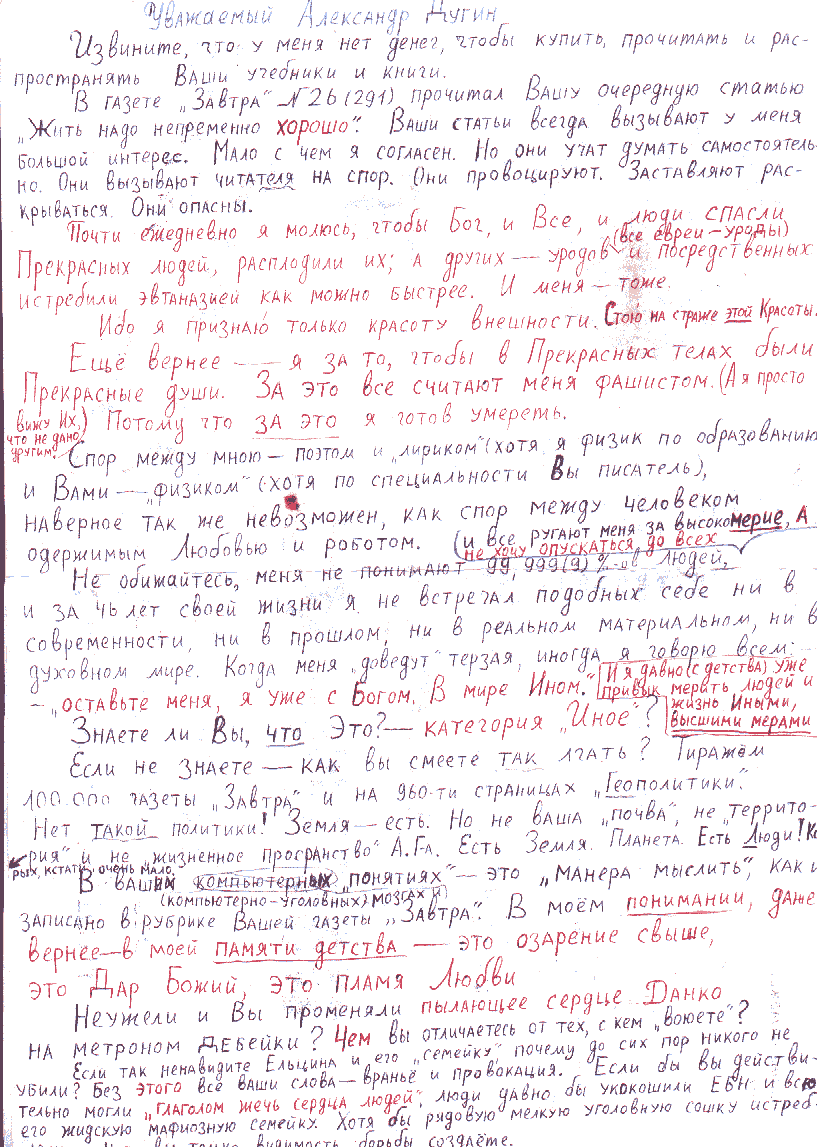 Уважаемый Александр Дугин
Извините, что у меня нет денег, чтобы купить, прочитать и рас-
пространять Ваши учебники и книги.
В газете „Завтра" №26 (291) прочитал Вашу очередную статью
„Жить надо непременно хорошо". Ваши статьи всегда вызывают у меня
большой интерес. Мало с чем я согласен. Но они учат думать самостоятель-
но. Они вызывают читателя на спор. Они провоцируют. Заставляют рас-
крываться. Они опасны.
Почти ежедневно я молюсь, чтобы Бог, и Все, и люди спасли
(все евреи – уроды)
Прекрасных людей, расплодили их; а других — уродов и посредственных
истребили эвтаназией как можно быстрее. И меня – тоже.
Ибо я признаю только красоту внешности. Стою на страже этой Красоты.
Ещё вернее — я за то, чтобы в Прекрасных телах были
Прекрасные души. За это все считают меня фашистом. (А я просто
вижу Их,) Потому что за это я готов умереть.
что не дано
другим.
Спор между мною – поэтом и „лириком" (хотя я физик по образованию)
и Вами — „физиком" (хотя по специальности Вы писатель),
наверное так же невозможен, как спор между человеком
одержимым Любовью и роботом. (и все ругают меня за высокомерие, А
не хочу опускаться до всех
Не обижайтесь, меня не понимают 99,999(9) %-ов людей,
и за 46 лет своей жизни я не встречал подобных себе ни в
современности, ни в прошлом, ни в реальном материальном, ни в
духовном мире. Когда меня „доведут" терзая, иногда я говорю всем:
– „оставьте меня, я уже с Богом. В мире Ином." И я давно (с детства) уже
привык мерить людей и
жизнь Иными,
высшими мерами
Знаете ли Вы, что Это? – категория „Иное"?
Если не знаете — как вы смеете так лгать? Тиражём
100.000 газеты „Завтра" и на 960-ти страницах „Геополитики".
Нет такой политики! Земля – есть. Но не ваша „почва", не „террито-
рия" и не „жизненное простанство" А.Гл. Есть Земля. Планета. Есть Люди! Ко
рых, кстати, очень мало.
В ваших компьютерных „понятиях" – это „манера мыслить", как и
(компьютерно-уголовных) мозгах и
записано в рубрике Вашей газеты „Завтра". В моём понимании, даже
вернее – в моей памяти детства — это озарение свыше,
это Дар Божий, это пламя Любви
Неужели и Вы променяли пылающее сердце Данко
на метроном Дебейки? Чем вы отличаетесь от тех, с кем „воюете"?
Если так ненавидите Ельцина и его „семейку", почему до сих пор никого не
убили? Без этого все ваши слова – враньё и провокация. Если бы вы действи-
тельно могли „глаголом жечь сердца людей", люди давно бы укокошили ЕБН и всю
его жидскую мафиозную семейку. Хотя бы рядовую мелкую уголовную сошку истреб-
вы только видимость борьбы создаёте.